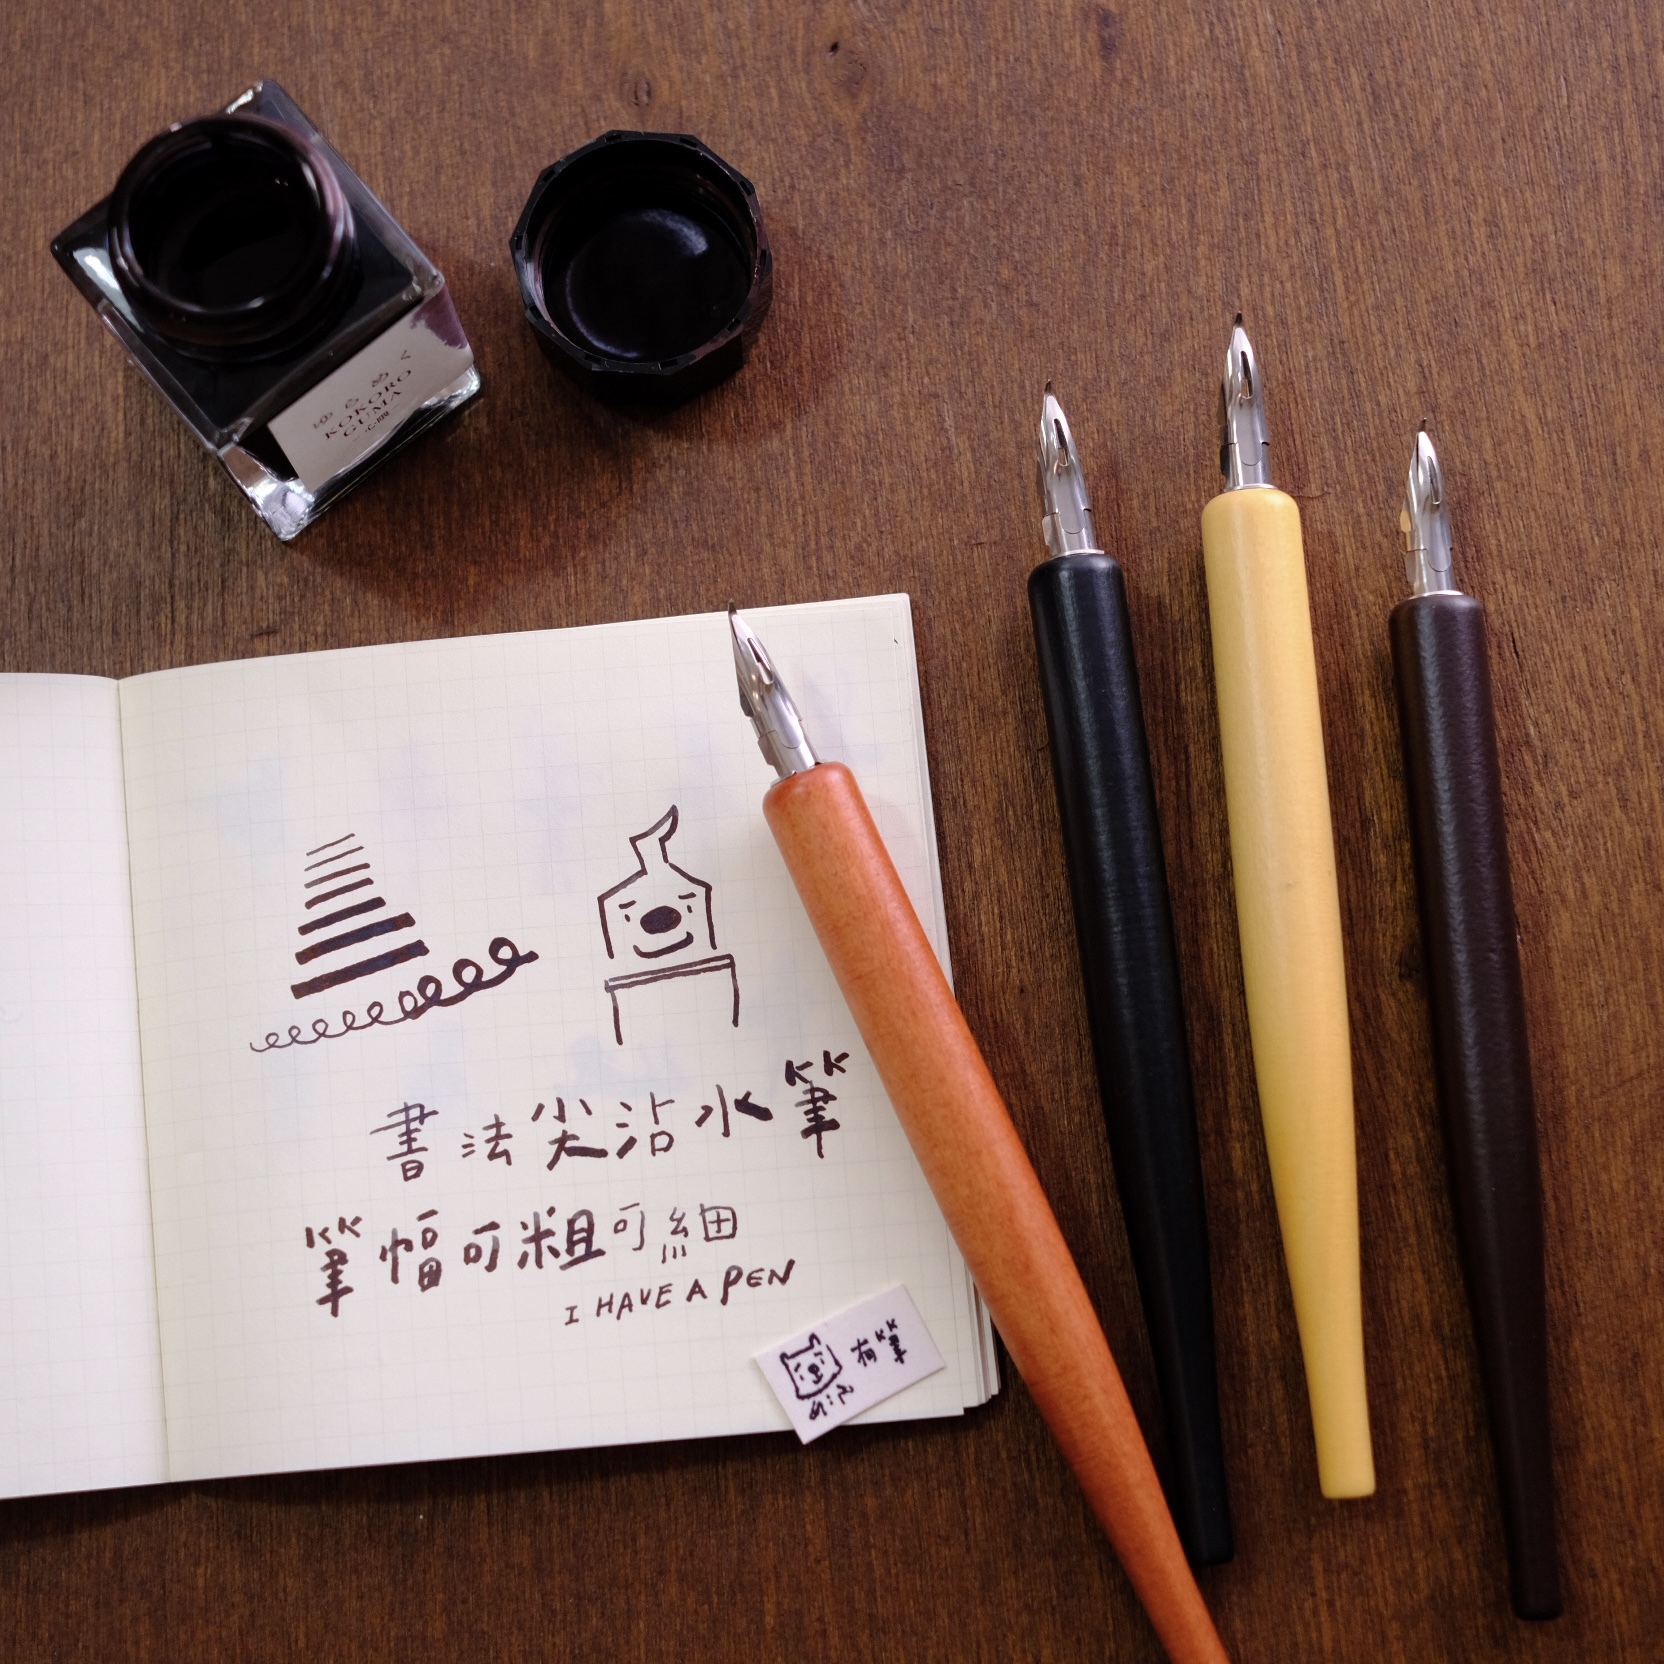 KOKORO
GUMA
書法尖沾水筆
筆幅可粗可細
I HAVE A PEN
有筆